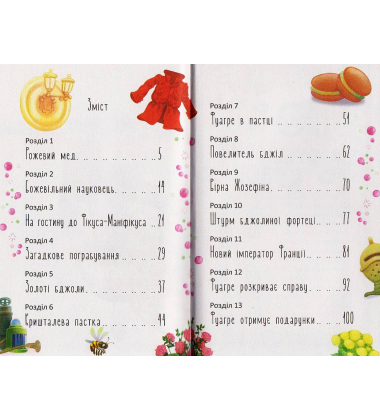 Зміст
Розділ 1
Рожевий мед. . . . . . . . . . . . 5
Розділ 2
Божевільний науковець. . . 14
Розділ 3
На гостину до Фікуса-Маніфікуса . . 21
Розділ 4
Загадкове пограбування . . . . 29
Розділ 5
Золоті бджоли. . . . . . . . . . 37
Розділ 6
Кришталева пастка . . . . . . . 44
Розділ 7
Фуагре в пастці . . . . . . . . 51
Розділ 8
Повелитель бджіл . . . . . . . 62
Розділ 9
Вірна Жозефіна. . . . . . . . . 70
Розділ 10
Штурм бджолиної фортеці . . . 77
Розділ 11
Новий імператор Франції. . . . 81
Розділ 12
Фуагре розкриває справу . . . 92
Розділ 13
Фуагре отримує подарунки . . . 100